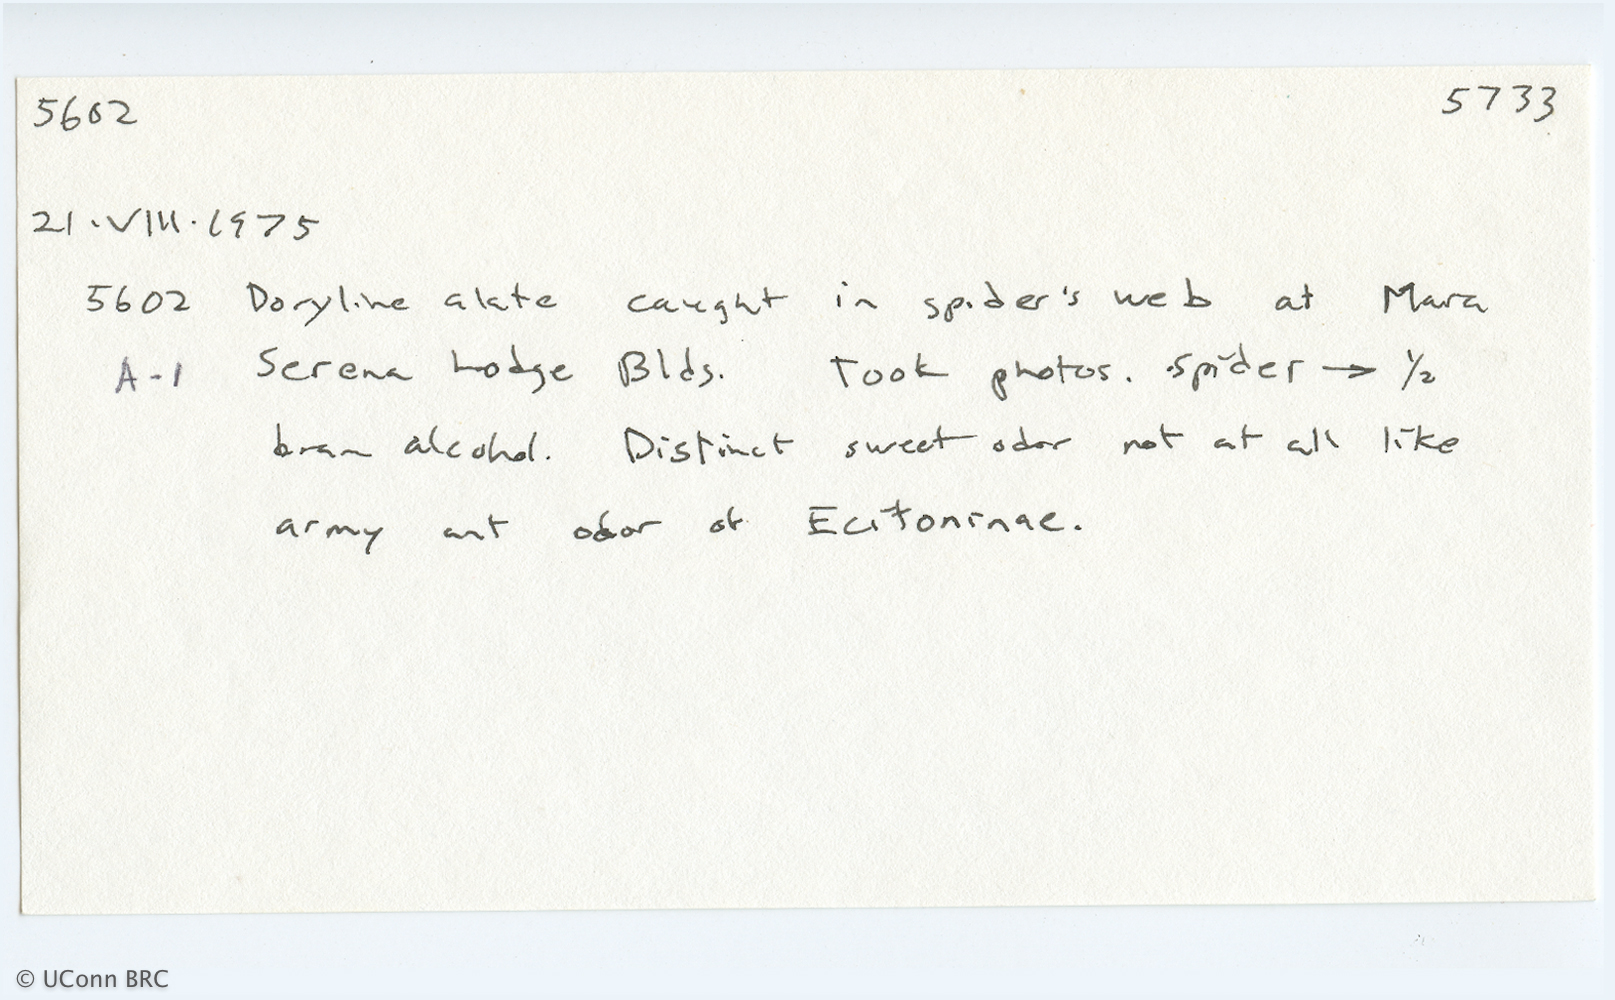 5602 5733
21.VIII.1975
5602 Doryline alate caught in spider's web at Mara
A-1 Serena Lodge Blds. Took photos. Spider → 1/2
bran alcohol. Distinct sweet odor not at all like
army ant odor of Ecitoninae.
© UConn BRC